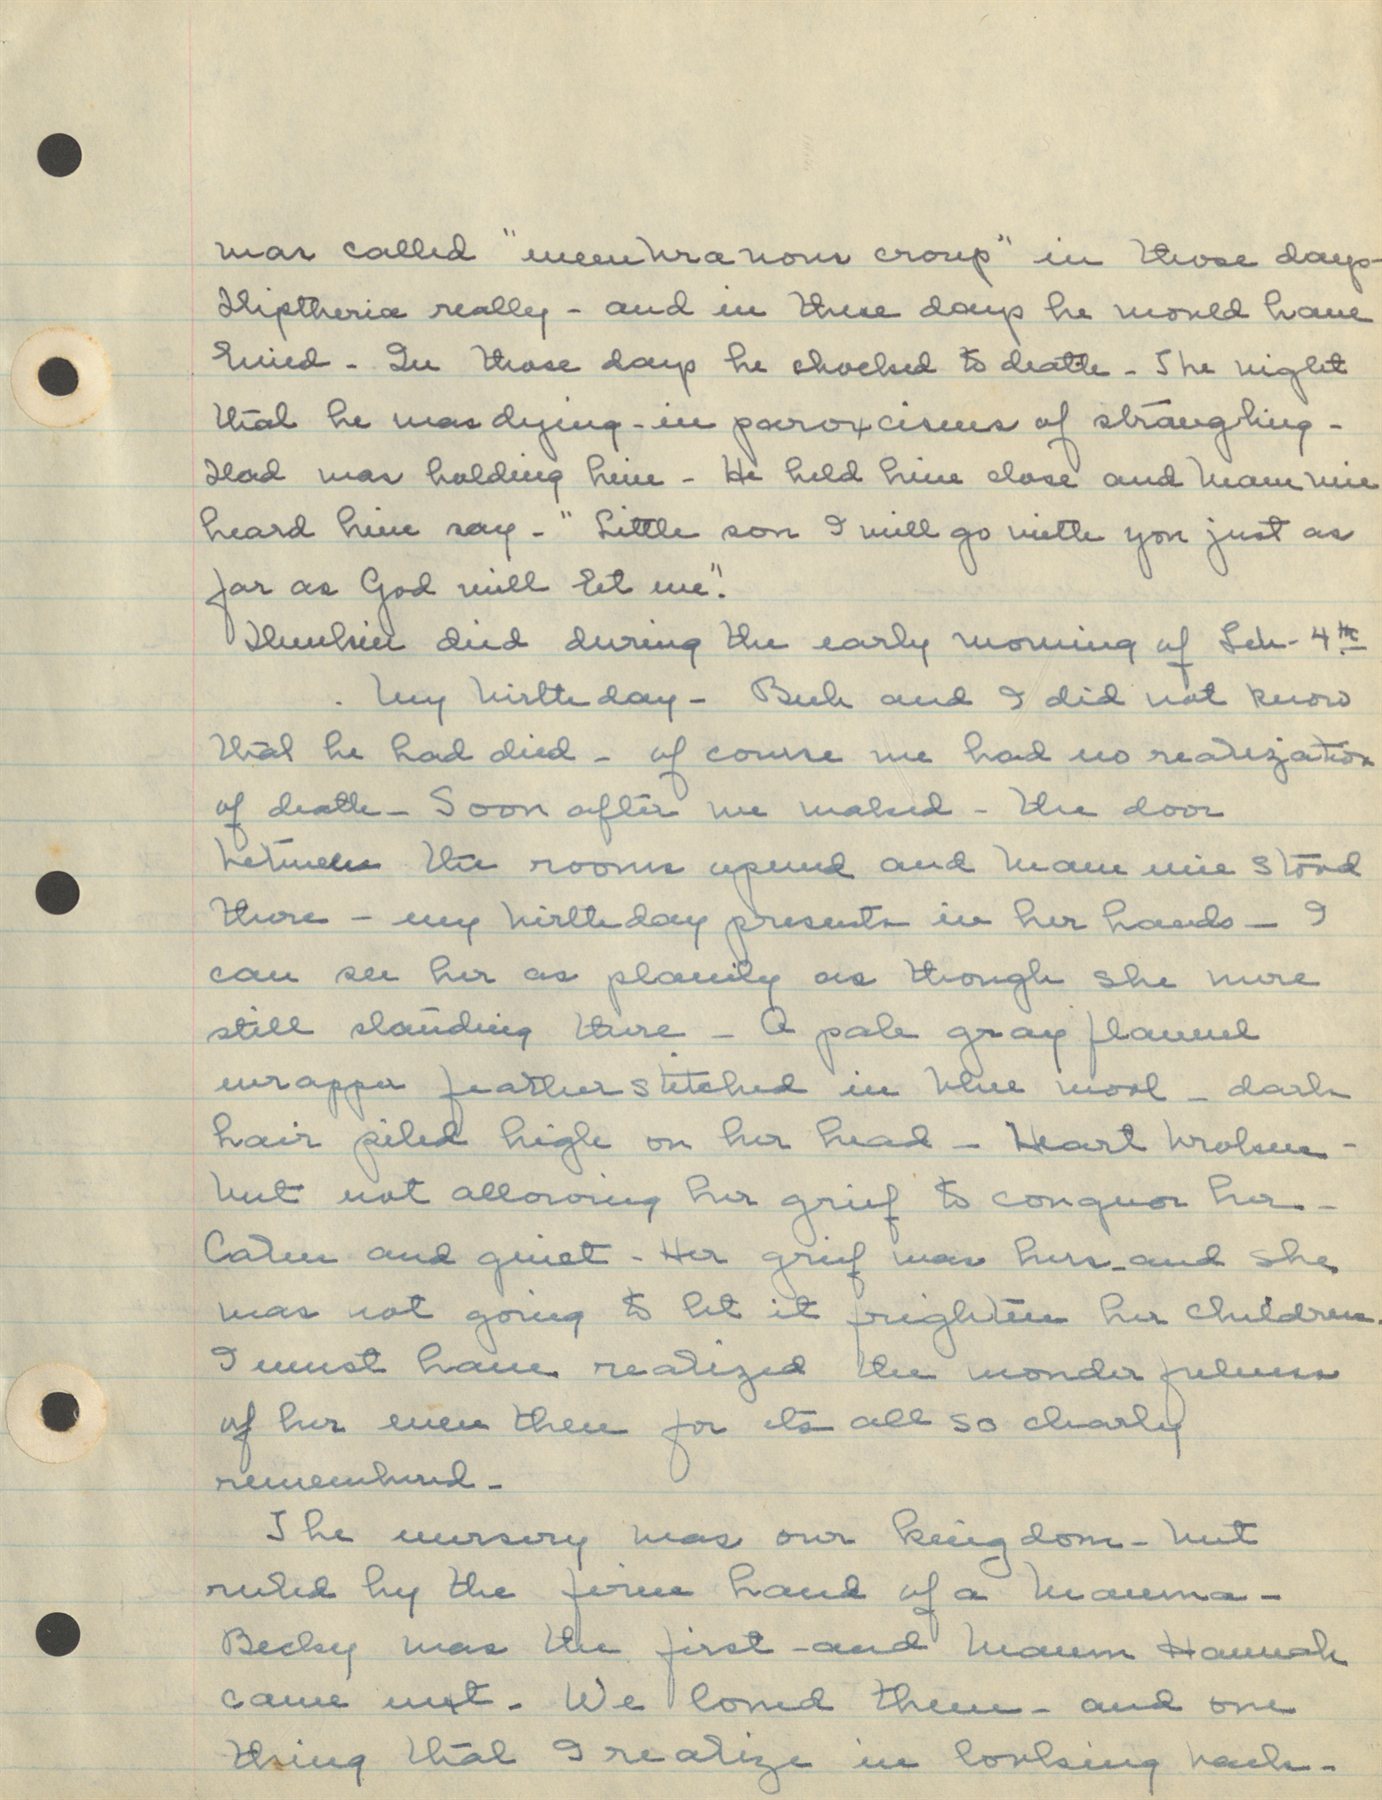 was called "membranous croup" in those days -
Diptheria really - and in these days he would have
lived - In those days he choked to death - The night
that he was dying - in paroxcisms of strangling -
Dad was holding him - He held him close and Mammie
heard him say - "Little son I will go with you just as
far as God will let me".
died during the early morning of Feb - 4th
. My birthday - Beck and I did not know
that he had died - of course we had no realization
of death - Soon after we waked - the door
between the rooms opened and Mammie stood
there - my birthday presents in her hands - I
can see her as plainly as though she were
still standing there - A pale gray flannel
wrapper feather stitched in blue wool - dark
hair piled high on her head - Heart broken -
but not allowing her grief to conquor her -
Calm and quiet - Her grief was hers - and she
was not going to let it frighten her children.
I must have realized the wonderfulness
of her even then for its all so clearly
remembered -
The nursery was our kingdom - but
ruled by the firm hand of a Mauma -
Becky was the first - and Maum Hannah
came next - We loved them - and one
thing that I realize in looking back -